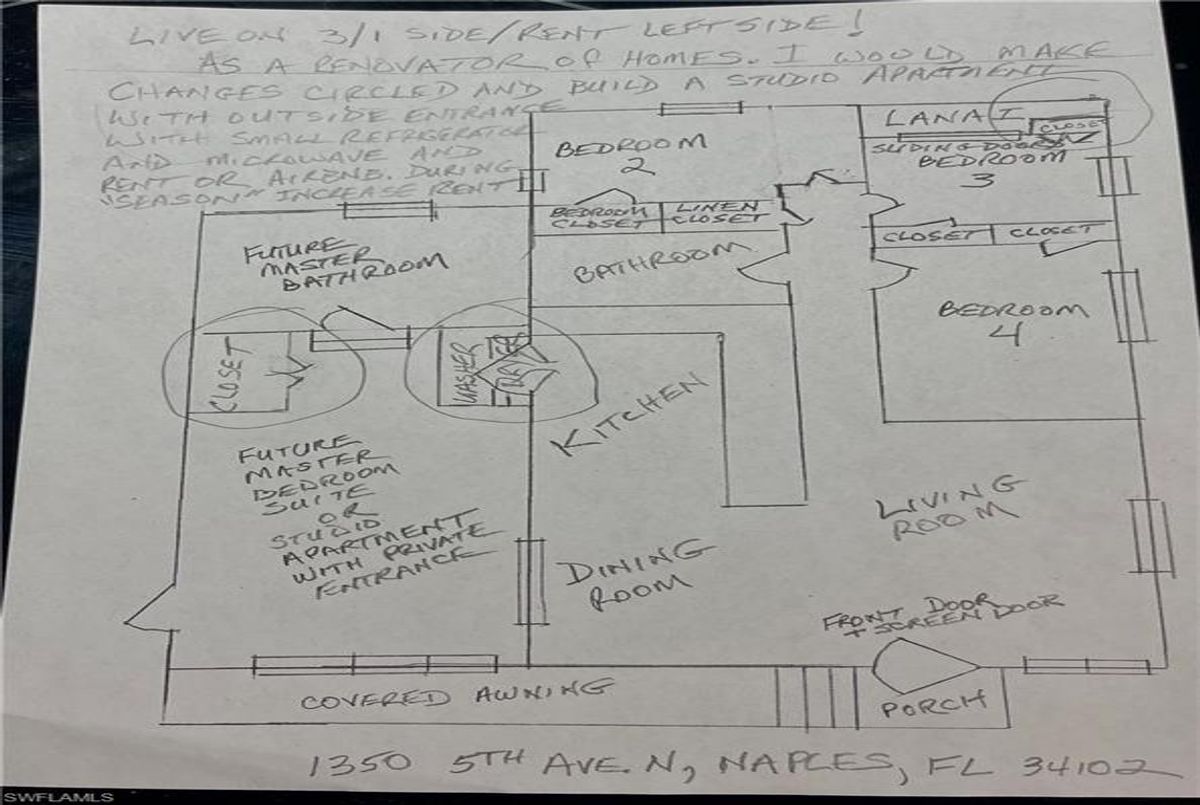 LIVE ON 3/1 SIDE/RENT LEFT SIDE!
AS A RENOVATOR OF HOMES. I WOULD MAKE
CHANGES CIRCLED AND BUILD A STUDIO APARTMENT
WITH OUTSIDE ENTRANCE
WITH SMALL REFRGERATOR
AND MICROWAVE AND
RENT OR AIRBNB. DURING
"SEASON" INCREASE RENT
BEDROOM
2
LANAI
CLOSET
SLIDING DOORS
BEDROOM
3
BEDROOM
CLOSET
LINEN
CLOSET
CLOSET
CLOSET
FUTURE
MASTER
BATHROOM
BATHROOM
BEDROOM
4
CLOSET
WASHER
KITCHEN
FUTURE
MASTER
BEDROOM
SUITE
OR
STUDIO
APARTMENT
WITH PRIVATE
ENTRANCE
LIVING
ROOM
DINING
ROOM
FRONT DOOR
+ SCREEN DOOR
COVERED AWNING
PORCH
1350 5TH AVE. N, NAPLES, FL 34102
SWFLAMLS